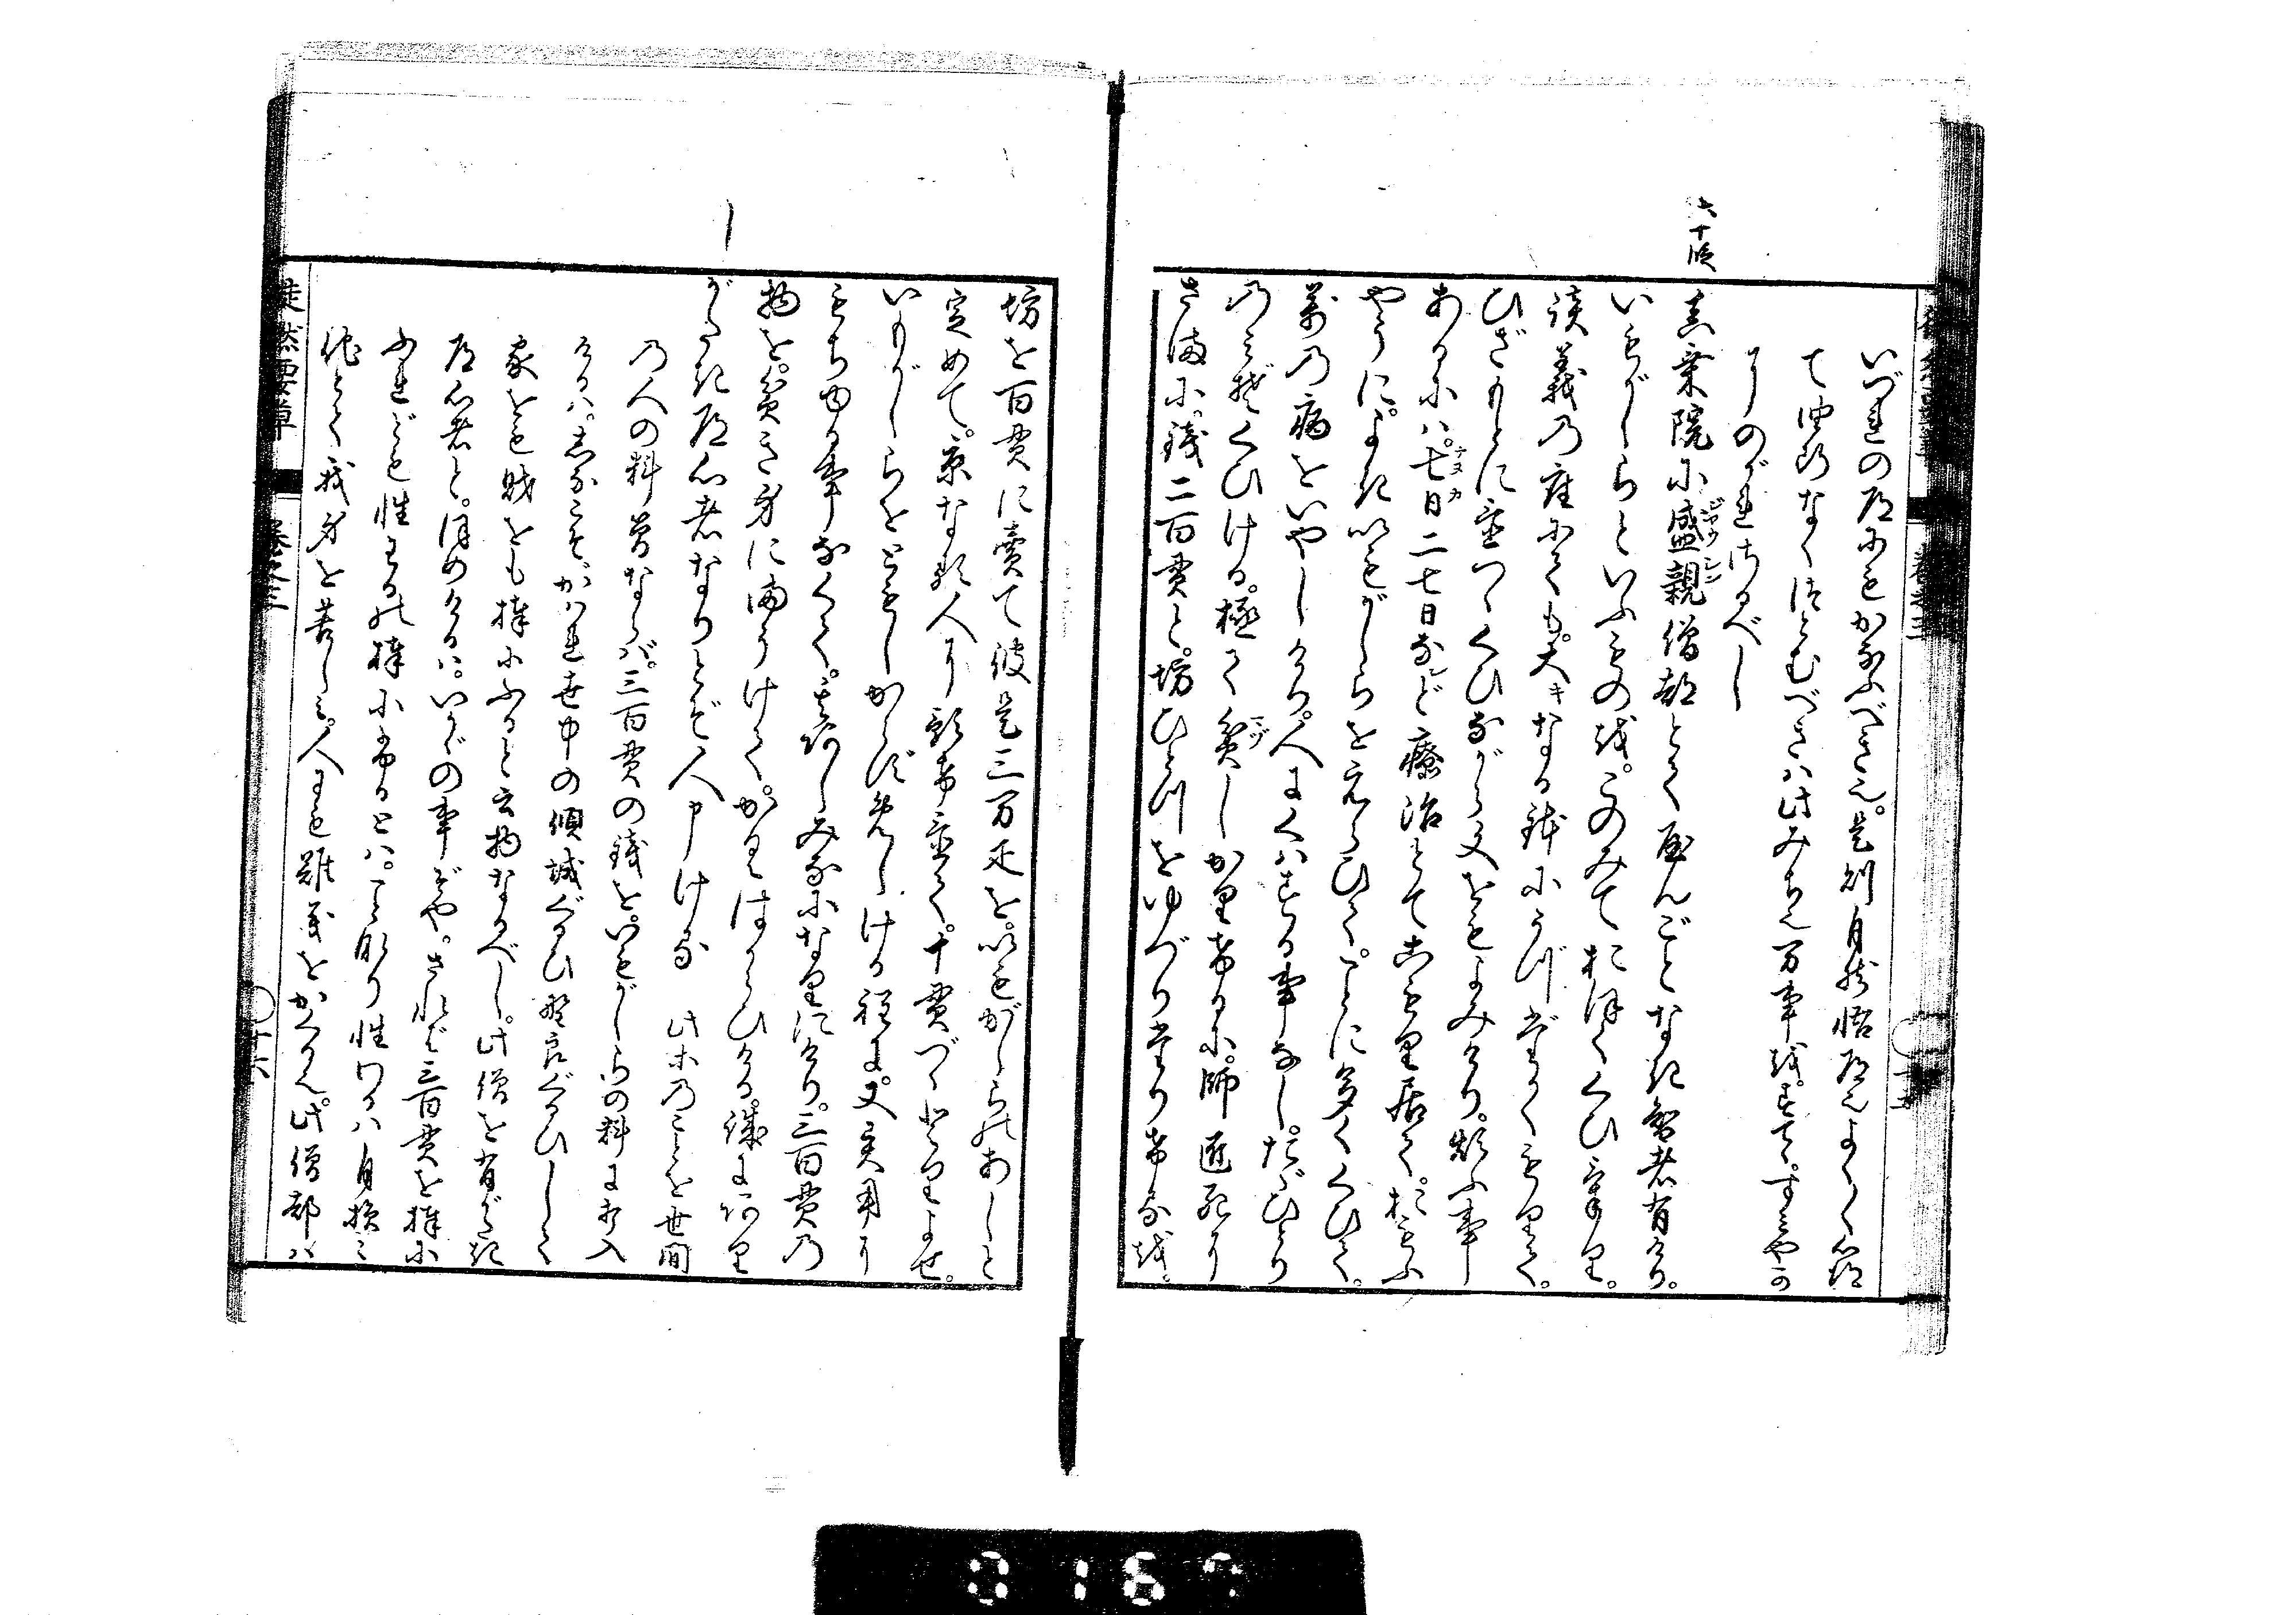 六十段
いづれの道にもかなふべきや。是則自然悟道也よく〳〵心得
て油断なくつとむべきハ此みち也万事を。すて。すミやか
にのがれ出べし
真乗院に盛親僧都とてやんごとなき智者有けり。
いもがしらといふものを。このみておほくくひけり。
談義の座にても。大キなる鉢にうづたかくもりて。
ひざもとに置つゝくひながら文をもよみけり。煩ふ事
あるにハ。七日二七日など療治とてこもり居て。おもふ
やうに。よきいもがしらをえらひて。ことに多くくひて。
萬の病をいやしけり。人にくハする事なし。たゞひとり
のミぞくひける。極て貧しかりけるに。師匠死に
さまに。銭二百貫と。坊ひとつをゆづりたりけるを。
坊を百貫に賣て彼是三万疋を。いもがしらのあしと
定めて。京なる人に預置て。十貫づゝとりよせ。
いもがしらをともしからずめしける程に。又実用に
もちゆる事なくて。其あしみなになりにけり。三百貫の
物を。貧き身にまうけて。かくはからひける。誠にあり
がたき道心者なりとぞ人申ける　此等のことを世間
の人の料簡ならバ。三百貫の銭を。いもがしらの料に打入
けるハ。しかこそかハれ世中の傾城ぐるひ野良ぐるひして
家をも財をも棒にふると云物なるべし。此僧を有がたき
道心者と。ほめけるハ。いかゞの事ぞや。されども三百貫を棒に
ふれども性わるの棒にふるとハ。ことかハり性わるハ自損ミ
他とて我身を苦しミ。人にも難義をかくる也。此僧都ハ
徒然要草　巻之三　〇十六